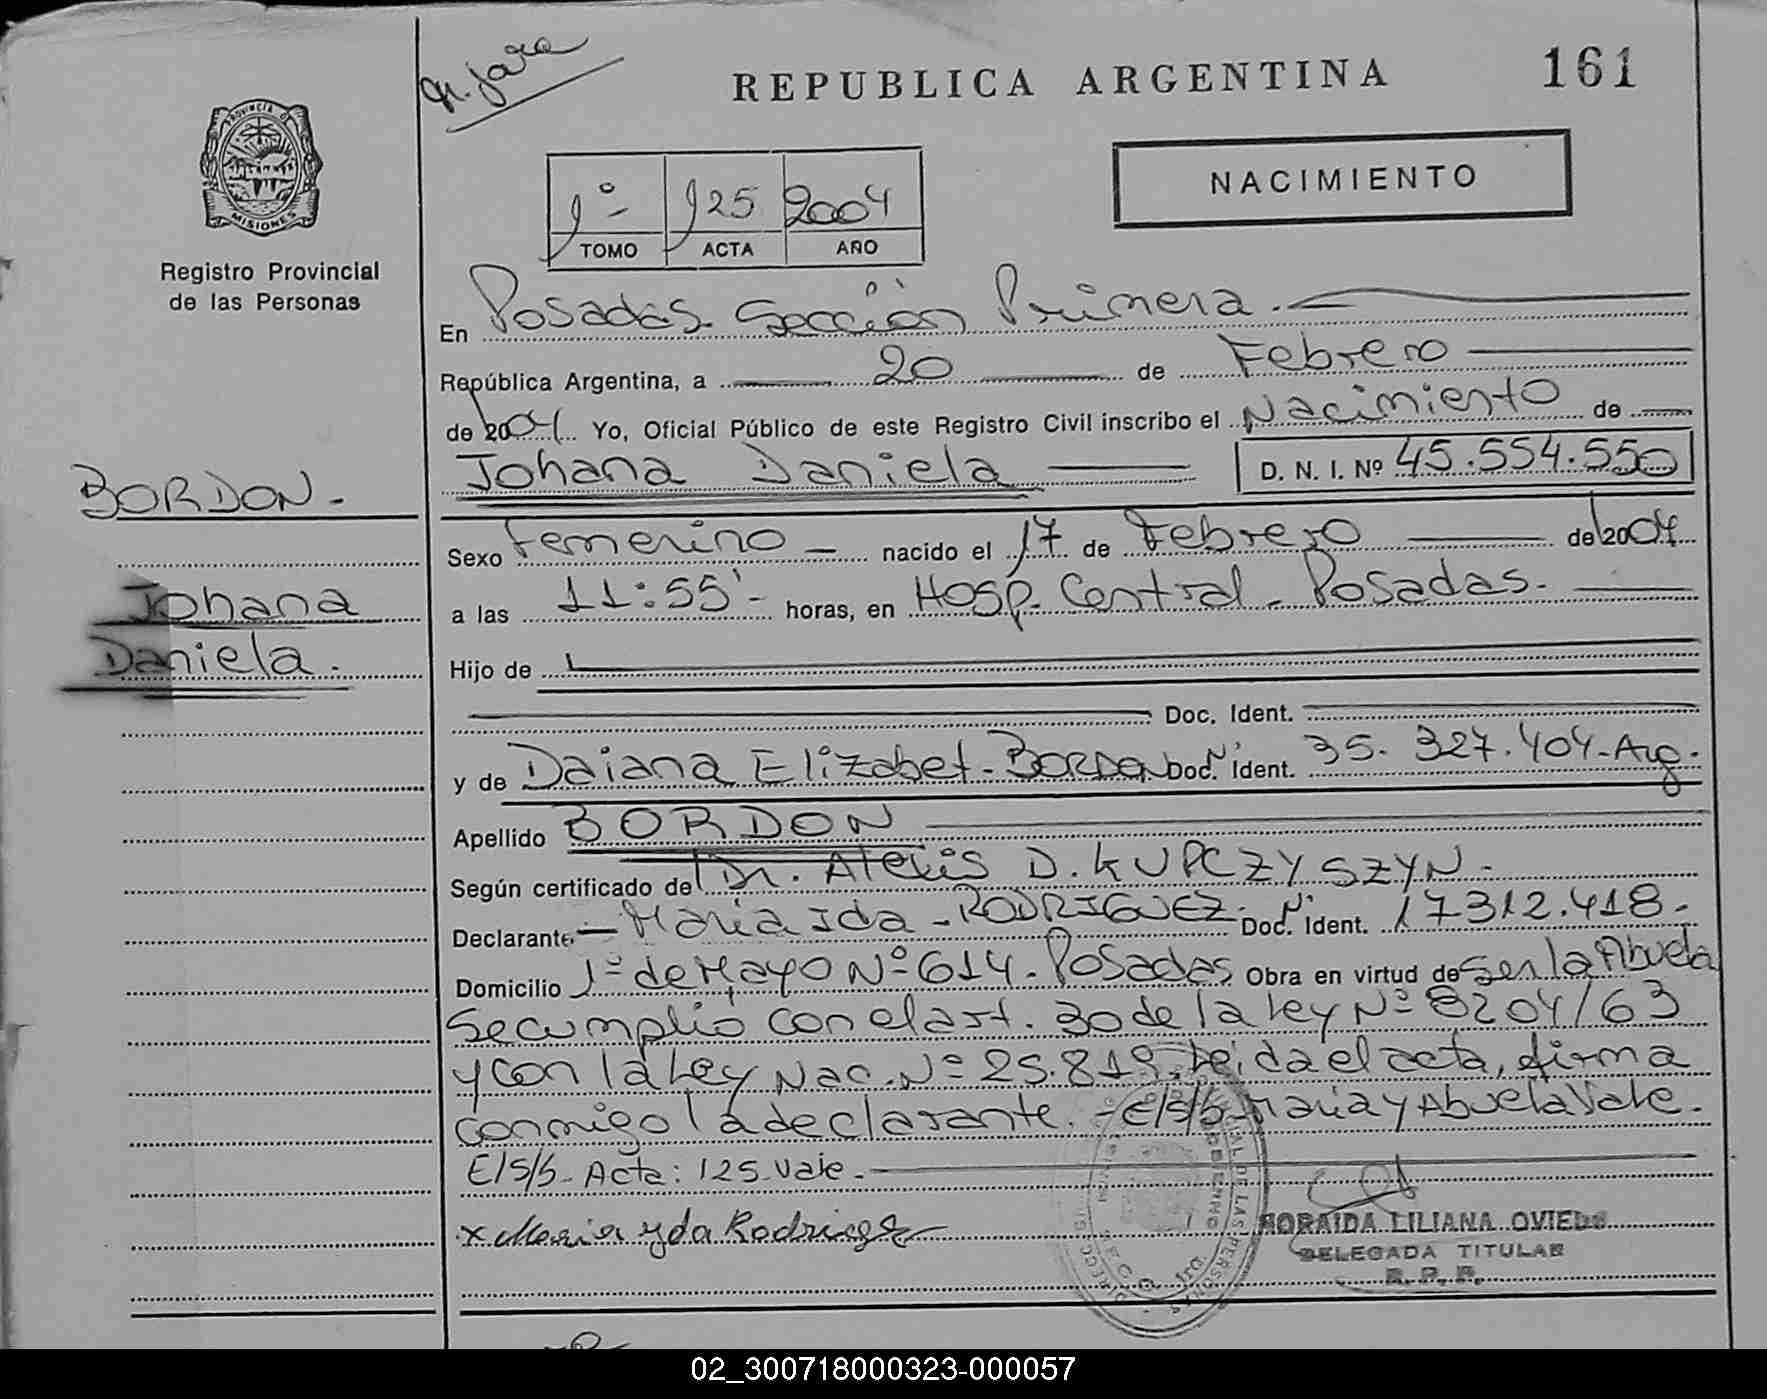 REPUBLICA ARGENTINA
161
PROVINCIA DE MISIONES
NACIMIENTO
1º 125 2004
TOMO ACTA AÑO
Registro Provincial
de las Personas
En Posadas Sección Primera.
República Argentina, a 20 de Febrero
de 2004 Yo, Oficial Público de este Registro Civil inscribo el Nacimiento de
Johana Daniela D. N. I. Nº 45.554.550
BORDON.-
Sexo Femenino nacido el 17 de Febrero de 2004
Johana
a las 11:55'- horas, en Hosp. Central - Posadas.-
Daniela.
Hijo de
Doc. Ident.
y de Daiana Elizabet - BORDON Doc. Ident. Nº 35.327.404-Arg.
Apellido BORDON
Según certificado de Dr. Alexis D. KUPCZYSZYN.-
Declarante - Maria Ida - RODRIGUEZ Doc. Ident. Nº 17312.418.-
Domicilio 1º de Mayo Nº 614 - Posadas Obra en virtud de Ser la Abuela
Se cumplió con el art. 30 de la Ley Nº 8204/63
y con la Ley Nac. Nº 25.819. Leída el acta, firma
conmigo la declarante. - E/S/b Maria y Abuela Vale.
E/S/b - Acta: 125 - Vale.-
x Maria yda Rodrigez
LILIANA OVIEDO
DELEGADA TITULAR
R. P. P.
02_300718000323-000057